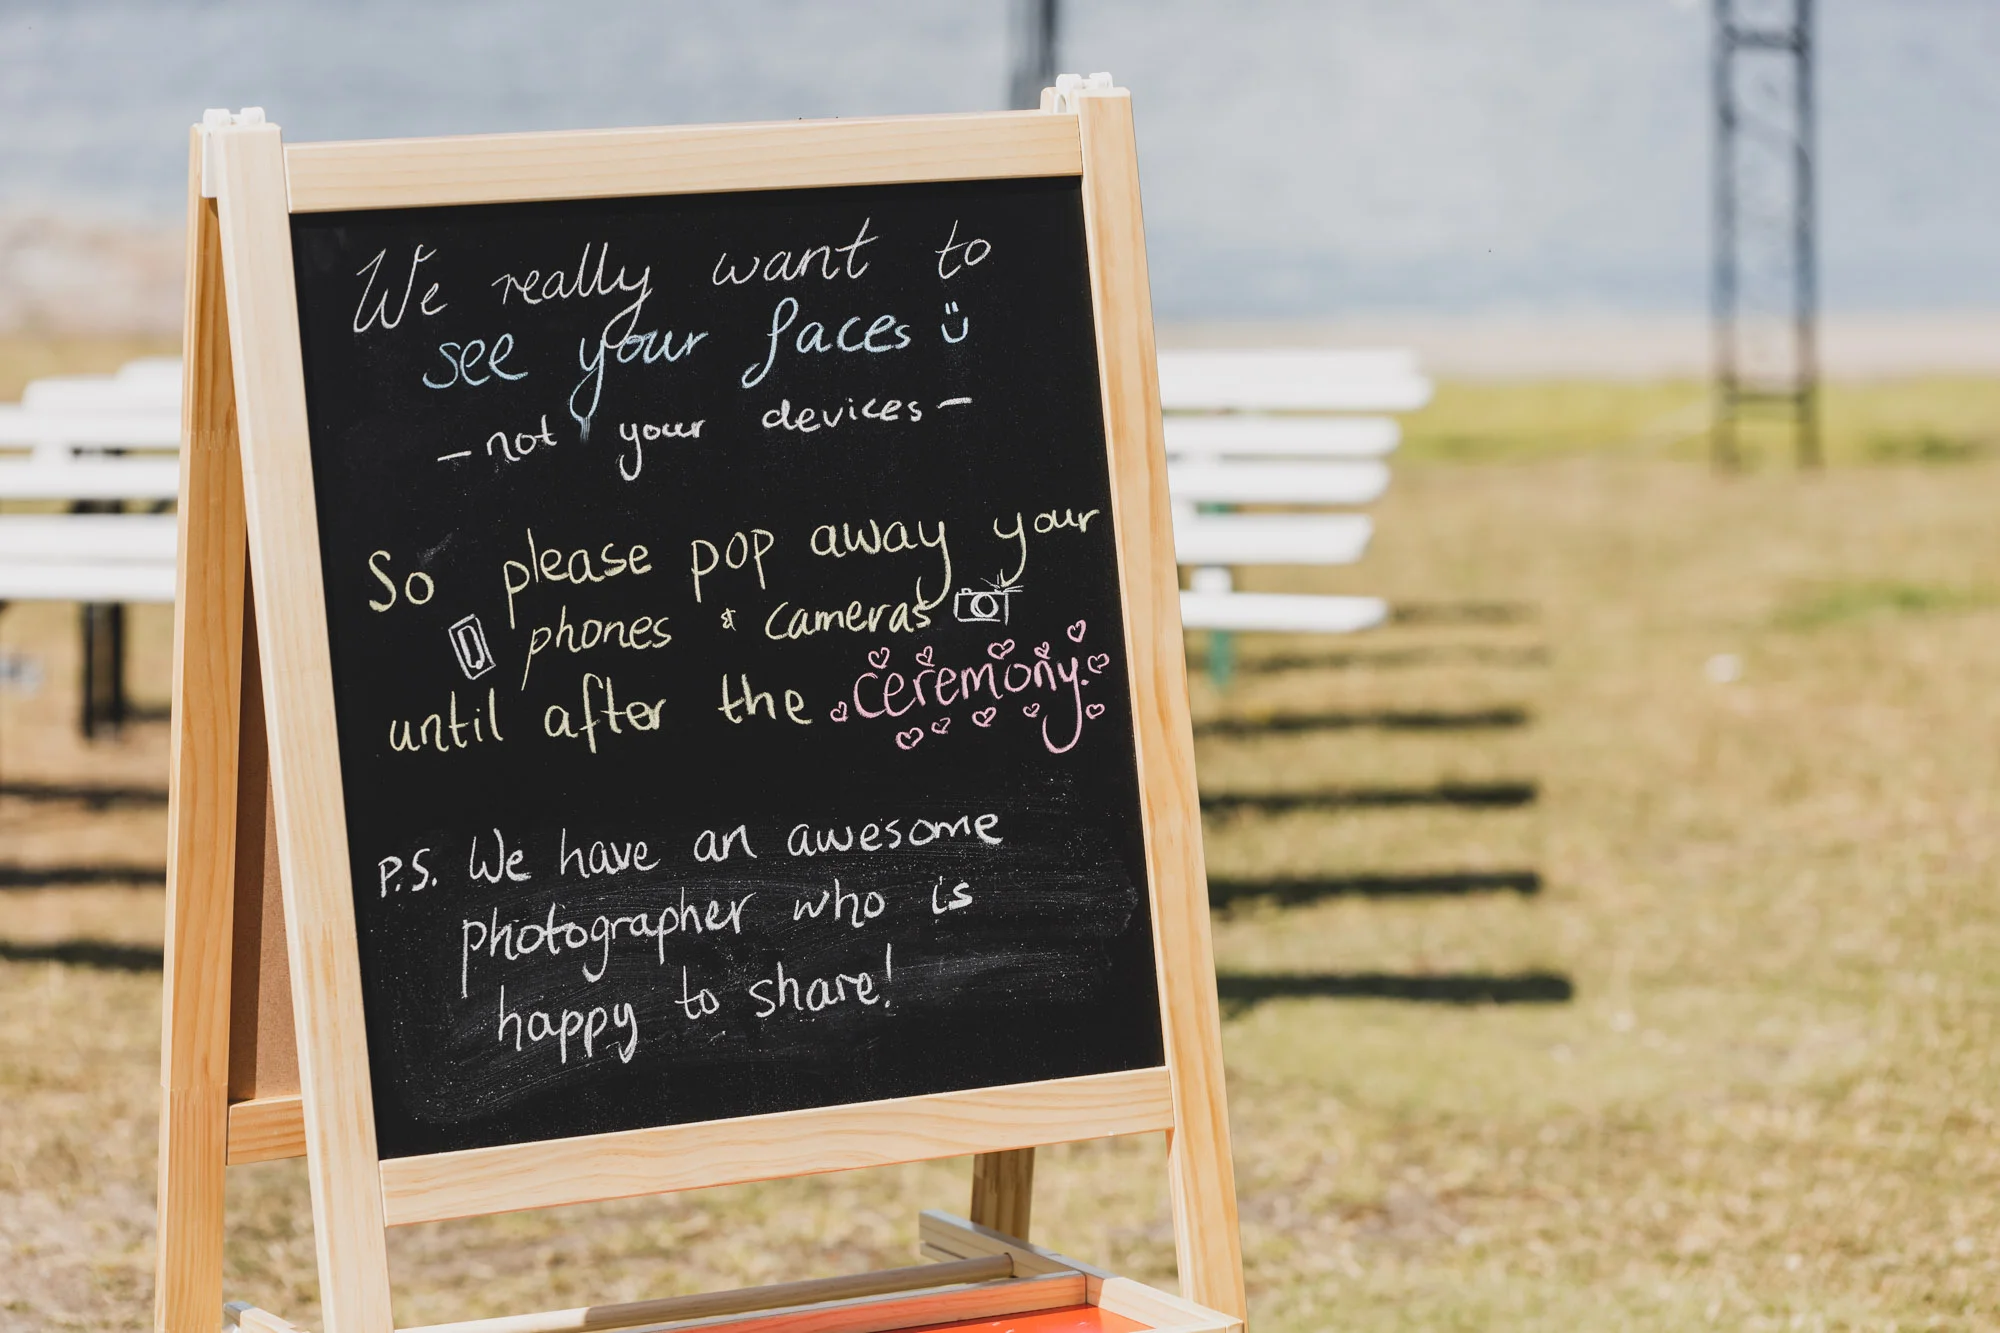 We really want to
see your faces
- not your devices -
So please pop away your
phones & cameras
until after the ceremony.
P.S. We have an awesome
photographer who is
happy to share!